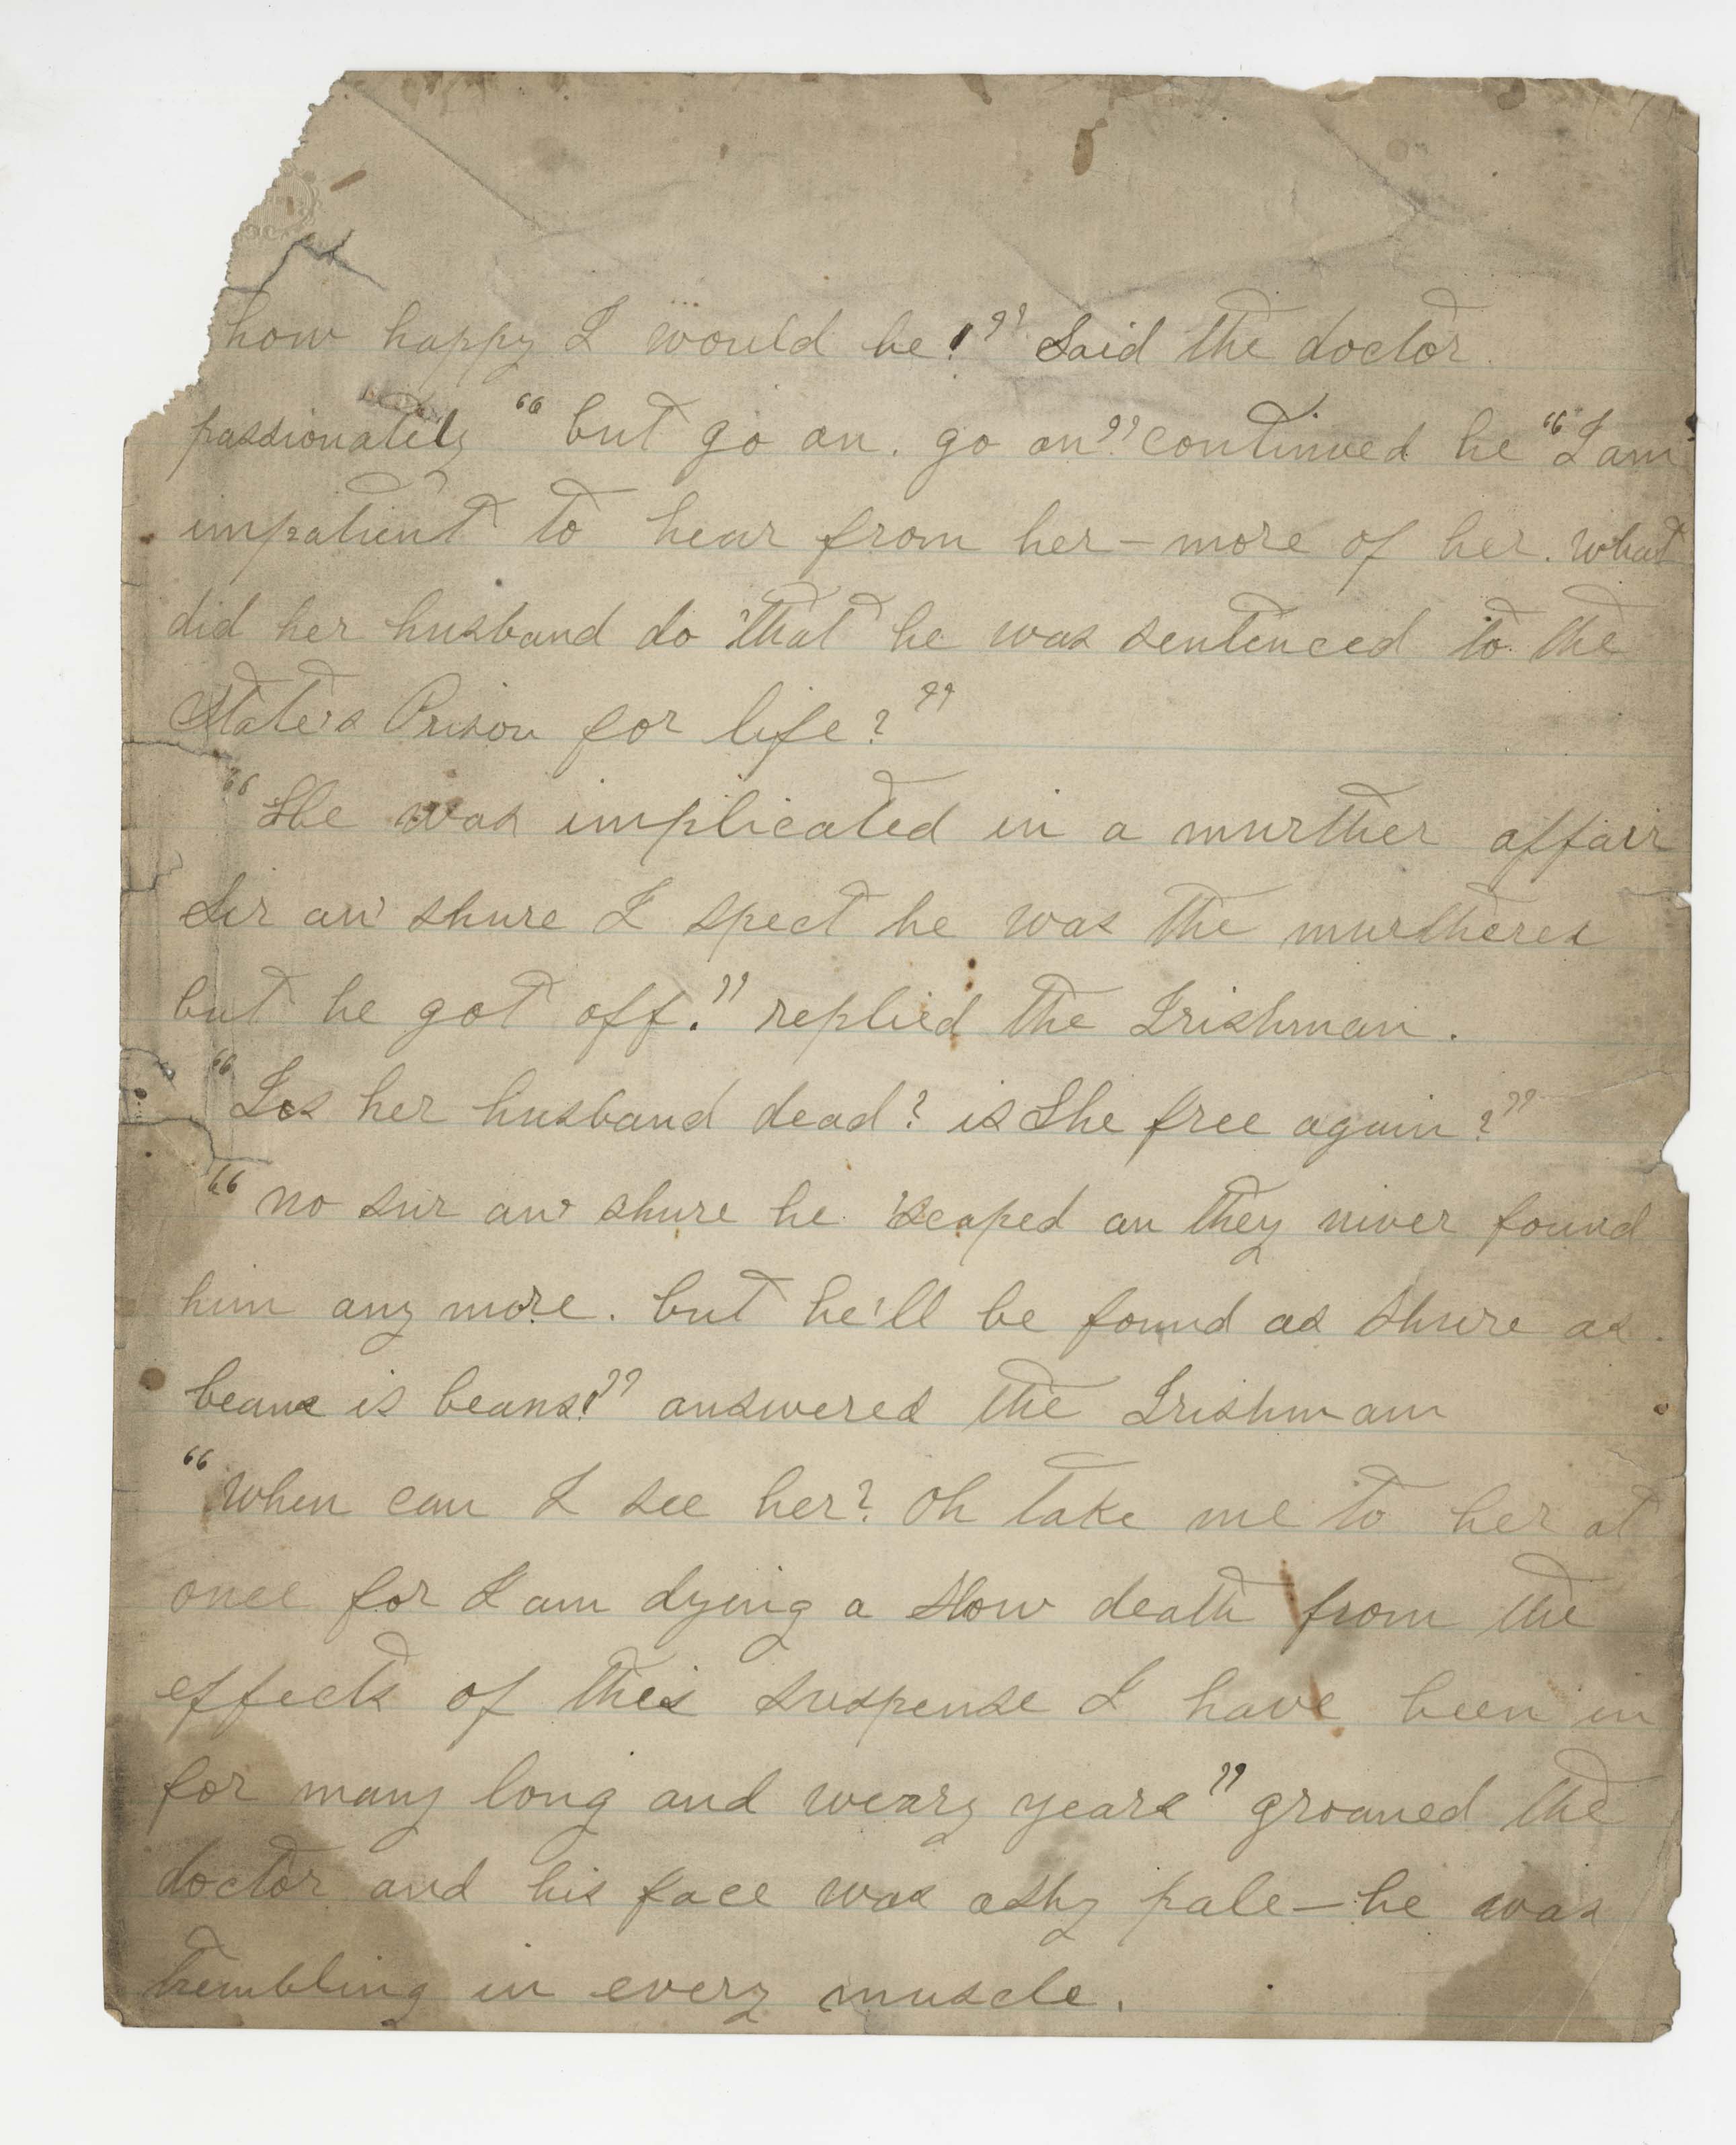 how happy I would be!" Said the doctor
passionately "but go on. go on". continued he "I am
impatient to hear from her — more of her. what
did her husband do that he was sentenced to the
State's Prison for life?"
"She was implicated in a murther affair
Sir an' shure I spect he was the murtherer
but he got off." replied the Irishman.
"Is her husband dead? is She free again?"
"no sur an' shure he 'scaped an they niver found
him any more. but he'll be found as shure as
beans is beans!" answered the Irishman
"When can I see her? Oh take me to her at
once for I am dying a slow death from the
effects of this suspense I have been in
for many long and weary years" groaned the
doctor and his face was ashy pale — he was
trembling in every muscle.